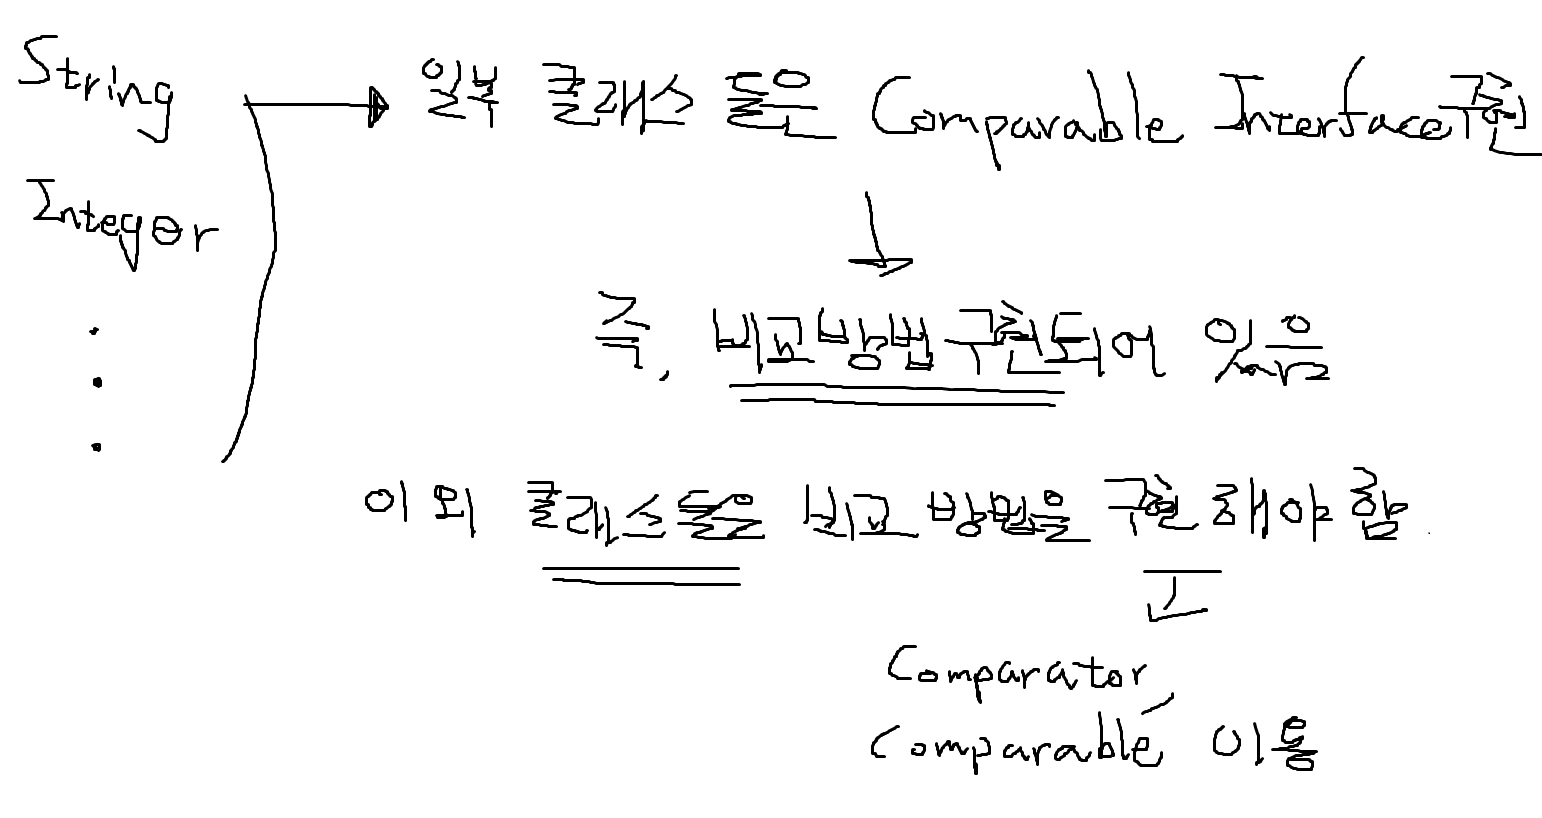 String
Integer
일부 클래스들은 Comparable Interface구현
즉, 비교방법구현되어 있음
이외 클래스들은 비교 방법을 구현해야 함.
Comparator,
Comparable 이용